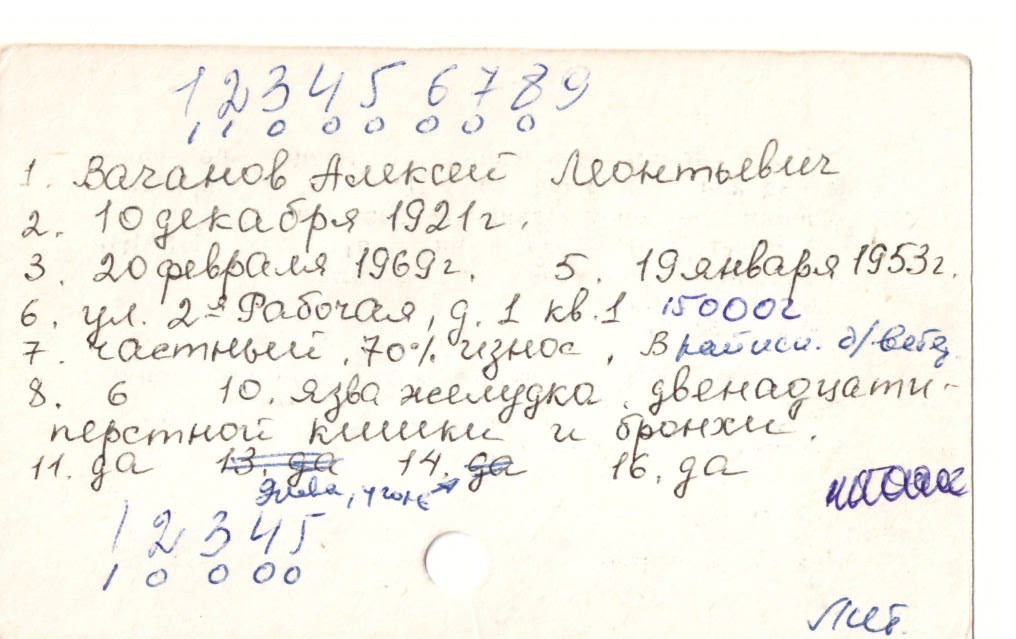 1 2 3 4 5 6 7 8 9
1 1 0 0 0 0 0 0
1. Вачанов Алексей Леонтьевич
2. 10 декабря 1921 г.
3. 20 февраля 1969 г. 5. 19 января 1953 г.
6. ул. 2-я Рабочая, д. 1 кв. 1 15000г
7. частный, 70% износ, В
8. 6 10. язва желудка, двенадцати-
перстной кишки и бронхи.
11. да 13. да 14. да 16. да
1 2 3 4 5
1 0 0 0 0